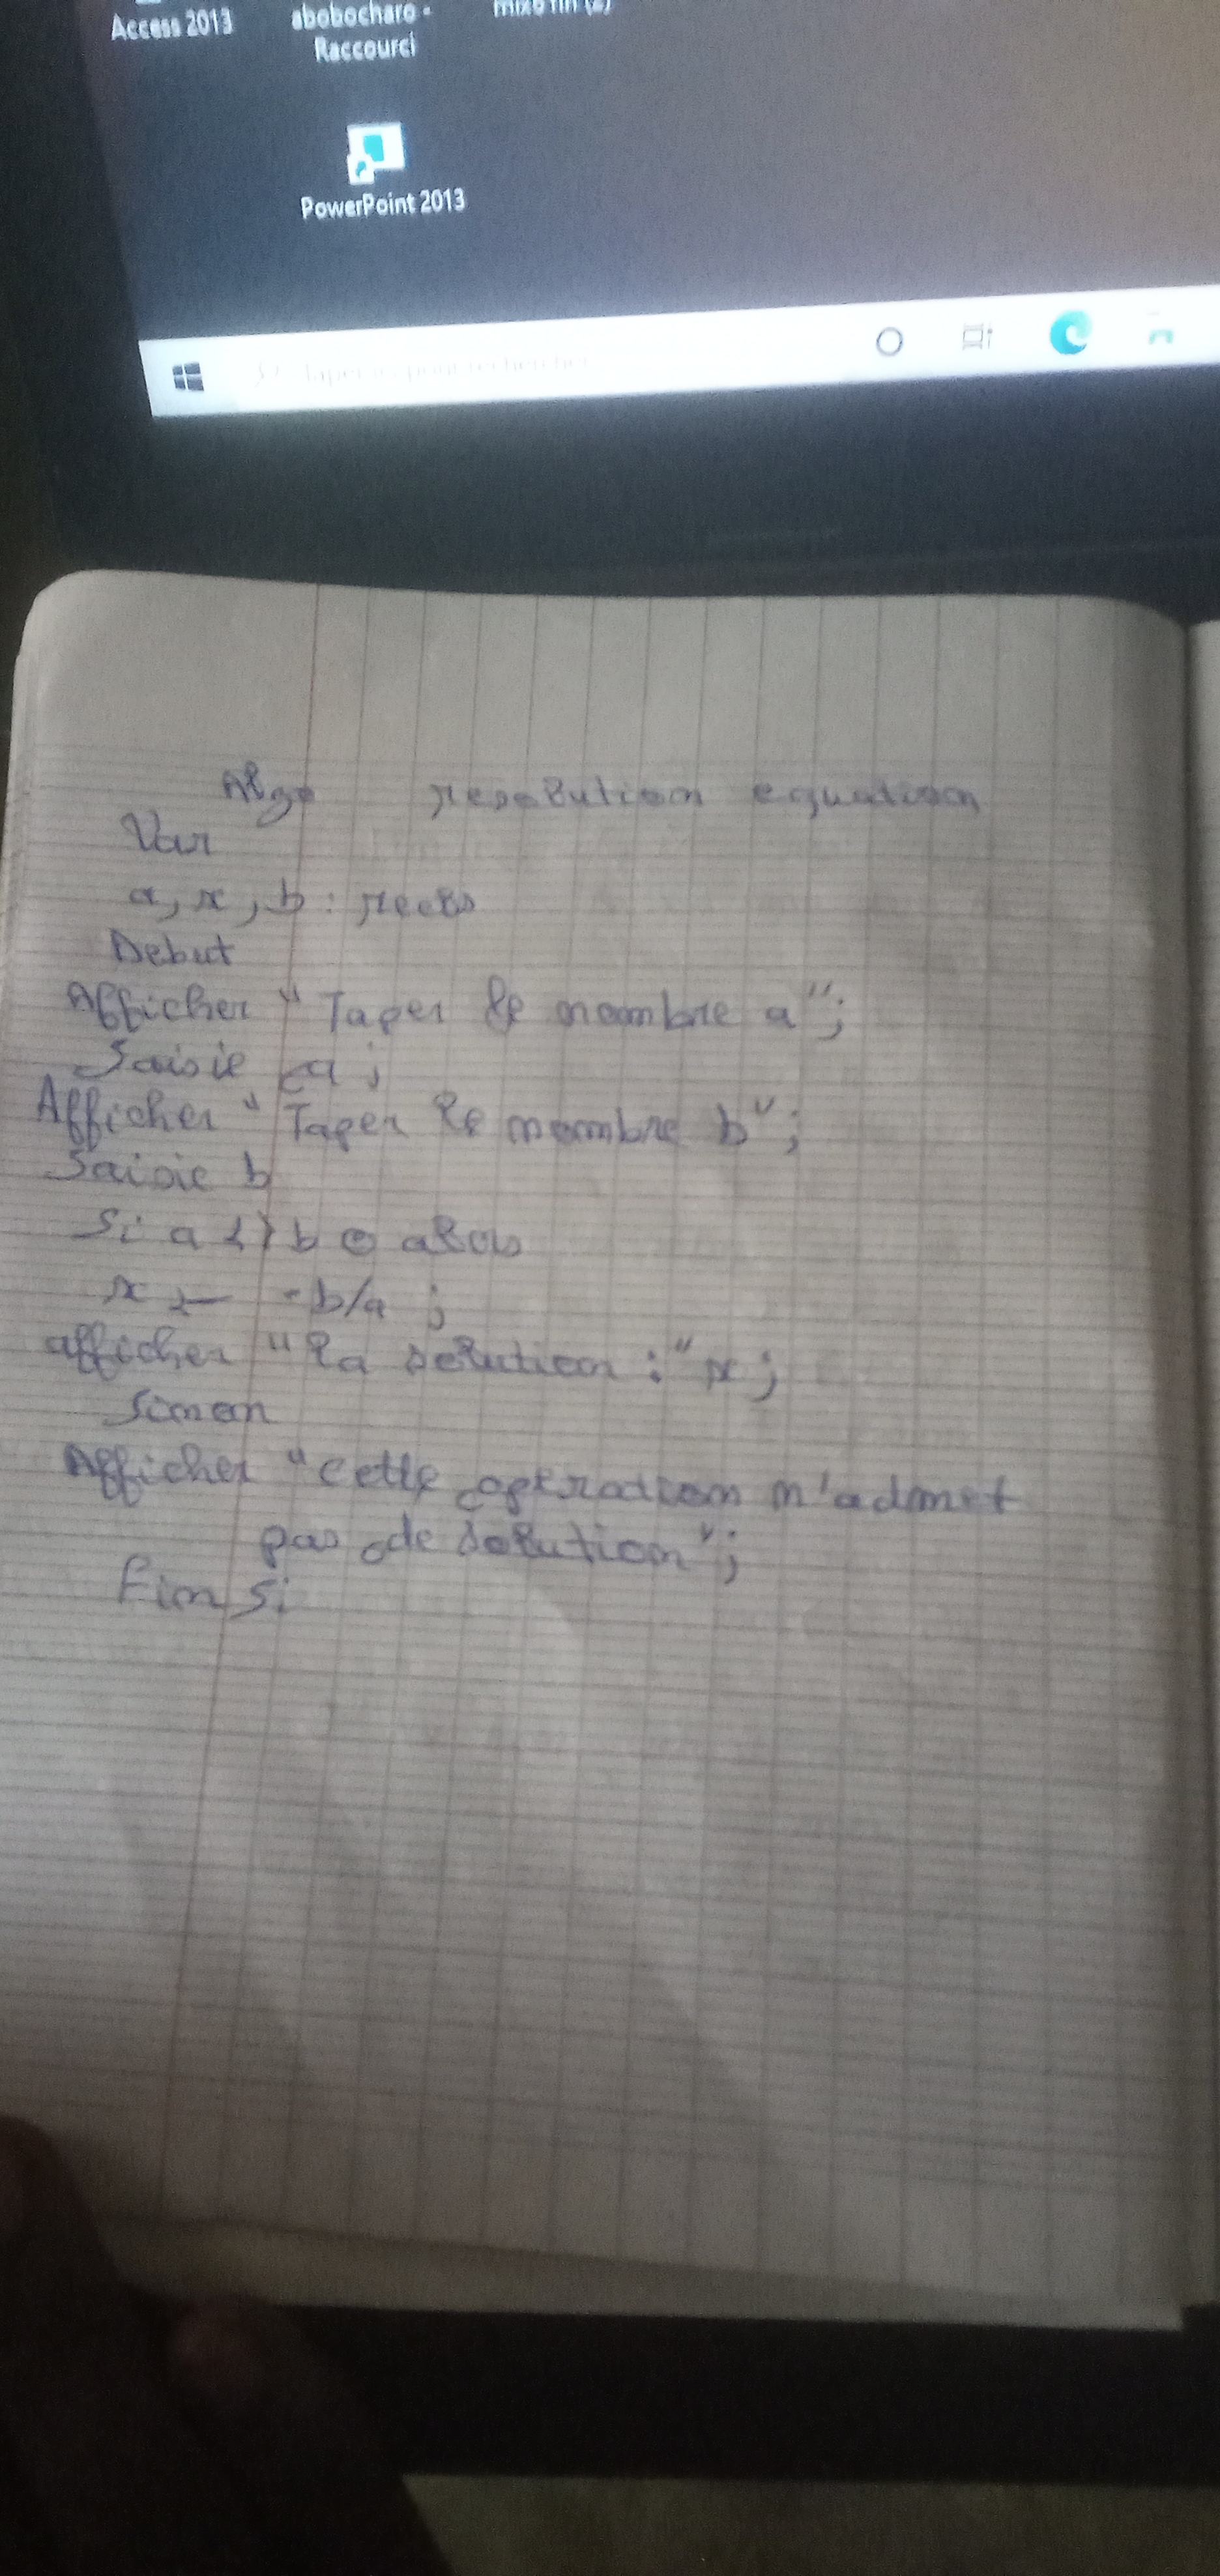 Access 2013
abobocharo -
Raccourci
PowerPoint 2013
Algo resolution equation
Var
a, x, b : reels
Debut
Afficher "Taper le nombre a";
Saisie a;
Afficher "Taper le nombre b";
Saisie b
Si a <> 0 alors
x ← -b/a ;
afficher "la solution :" x;
Sinon
Afficher "cette operation n'admet
pas de solution";
Fin Si